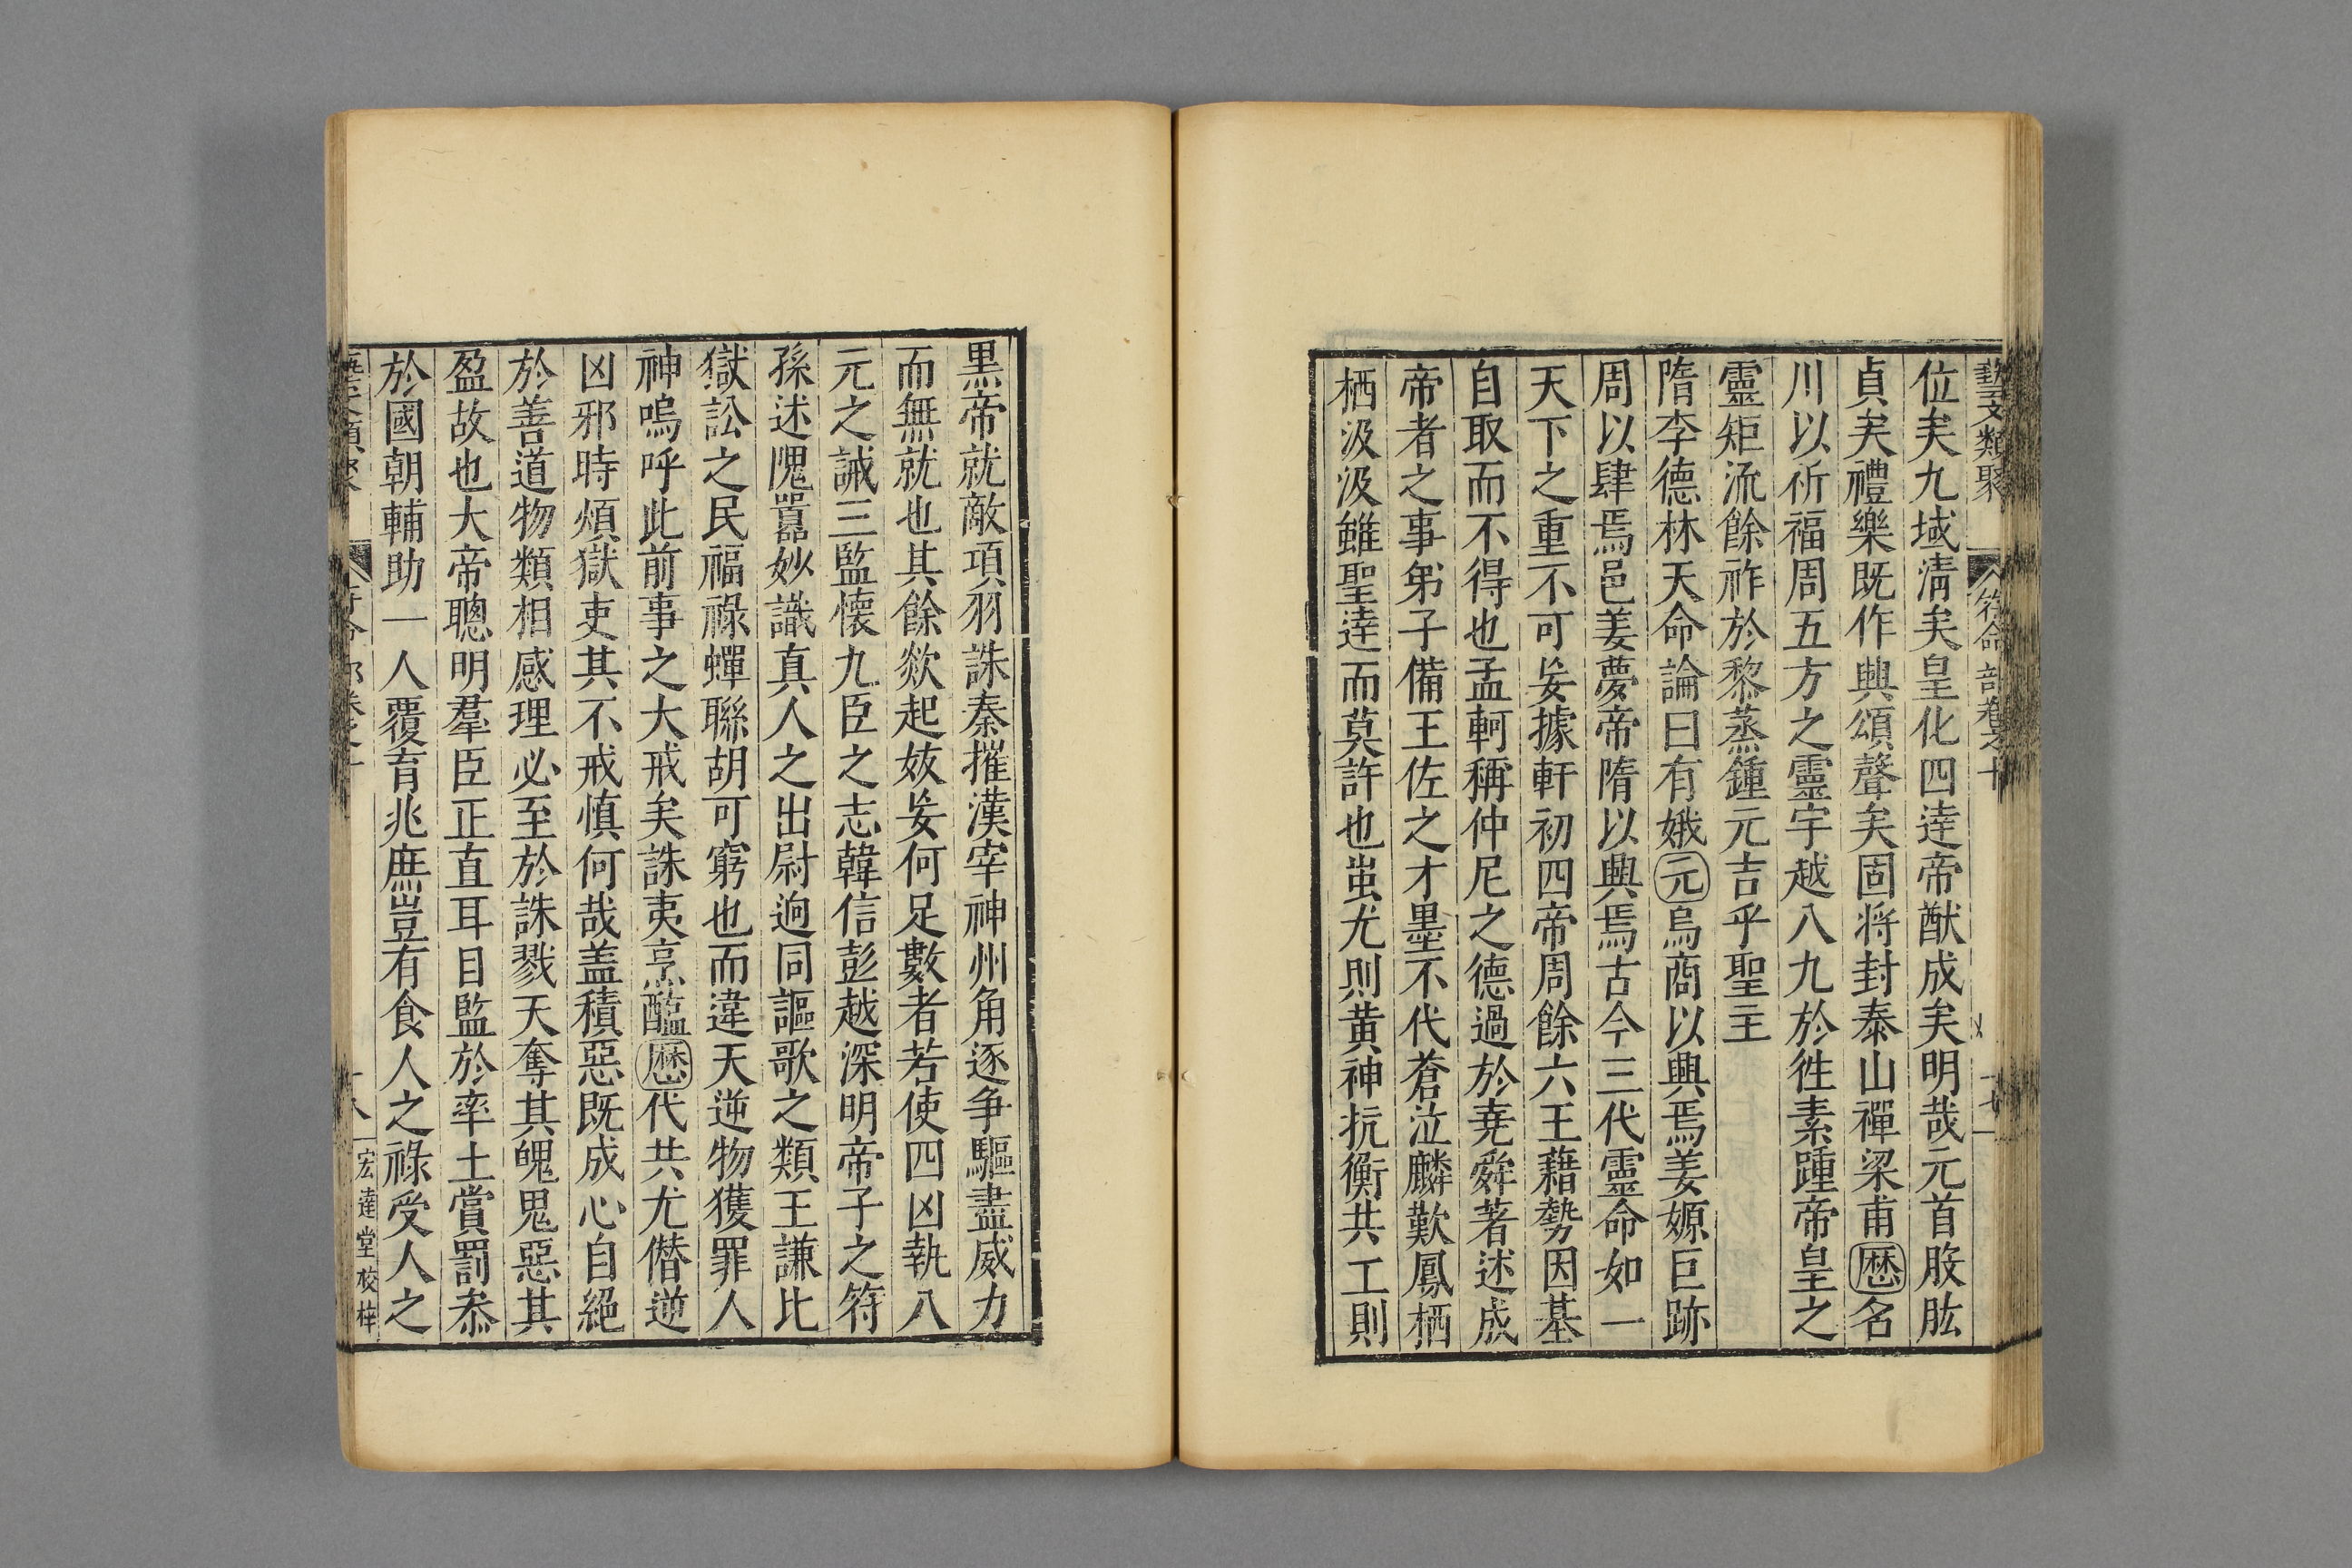 藝文類聚 符命部卷之十 十七
位矣九域清矣皇化四達帝猷成矣明哉元首股肱
貞矣禮樂既作興頌聲矣固將封泰山禪梁甫歷名
川以祈福周五方之靈宇越八九於徃素踵帝皇之
靈矩流餘祚於黎蒸鍾元吉乎聖主
隋李德林天命論曰有娥元烏商以興焉姜嫄巨跡
周以肆焉邑姜夢帝隋以興焉古今三代靈命如一
天下之重不可妄據軒初四帝周餘六王藉勢因基
自取而不得也孟軻稱仲尼之德過於堯舜著述成
帝者之事弟子備王佐之才墨不代蒼泣麟歎鳳栖
栖汲汲雖聖達而莫許也蚩尤則黄神抗衡共工則
黒帝就敵項羽誅秦摧漢宰神州角逐争驅盡威力
而無就也其餘欻起妖妄何足數者若使四凶執八
元之誡三監懷九臣之志韓信彭越深明帝子之符
孫述隗囂妙識真人之出尉逈同謳歌之類王謙比
獄訟之民福祿蟬聯胡可窮也而違天逆物獲罪人
神嗚呼此前事之大戒矣誅夷烹醢歷代共尤僭逆
凶邪時煩獄吏其不戒慎何哉盖積惡既成心自絕
於善道物類相感理必至於誅戮天奪其魄鬼惡其
盈故也大帝聰明羣臣正直耳目監於率土賞罰叅
於國朝輔助一人覆育兆庶豈有食人之祿受人之
十八 宏達堂校梓